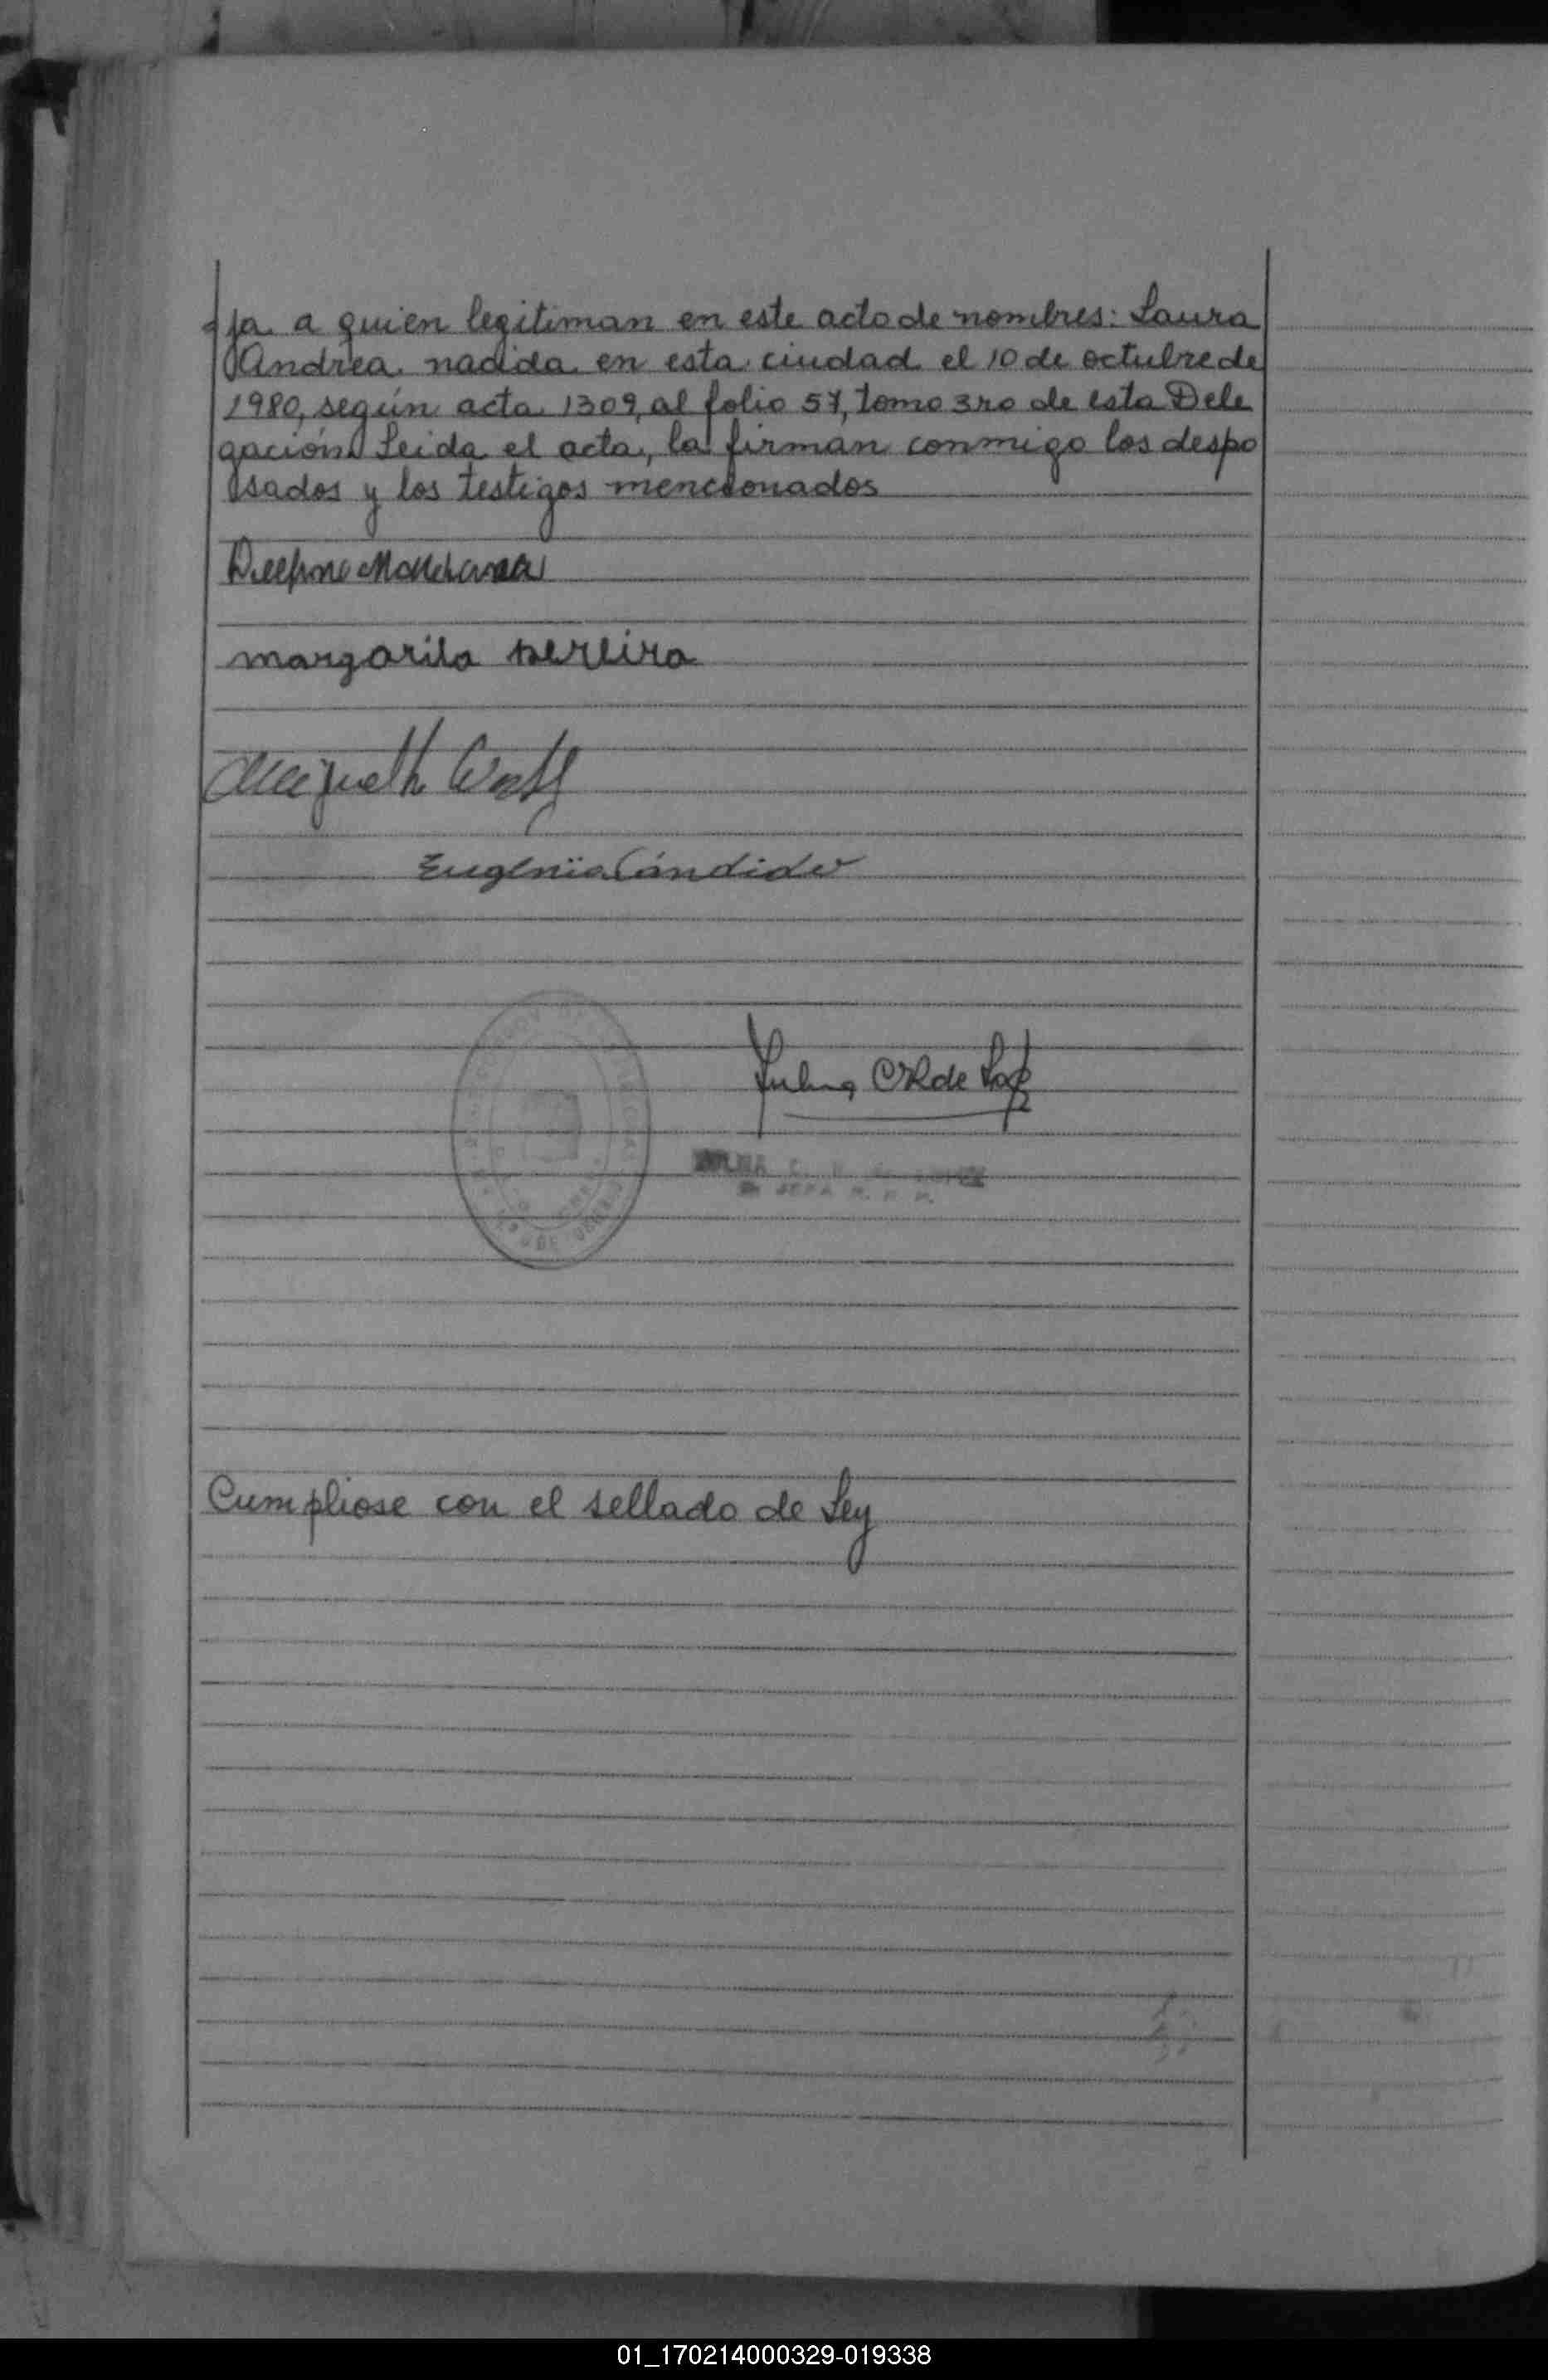 ja a quien legitiman en este acto de nombres: Laura
Andrea nacida en esta ciudad el 10 de octubre de
1980, según acta 1309, al folio 57, tomo 3ro de esta Dele
gación Leida el acta, la firman conmigo los despo
sados y los testigos mencionados
margarita pereira
Eugenia Cándido
JEFA
DE
Cumpliose con el sellado de Ley
01_170214000329-019338